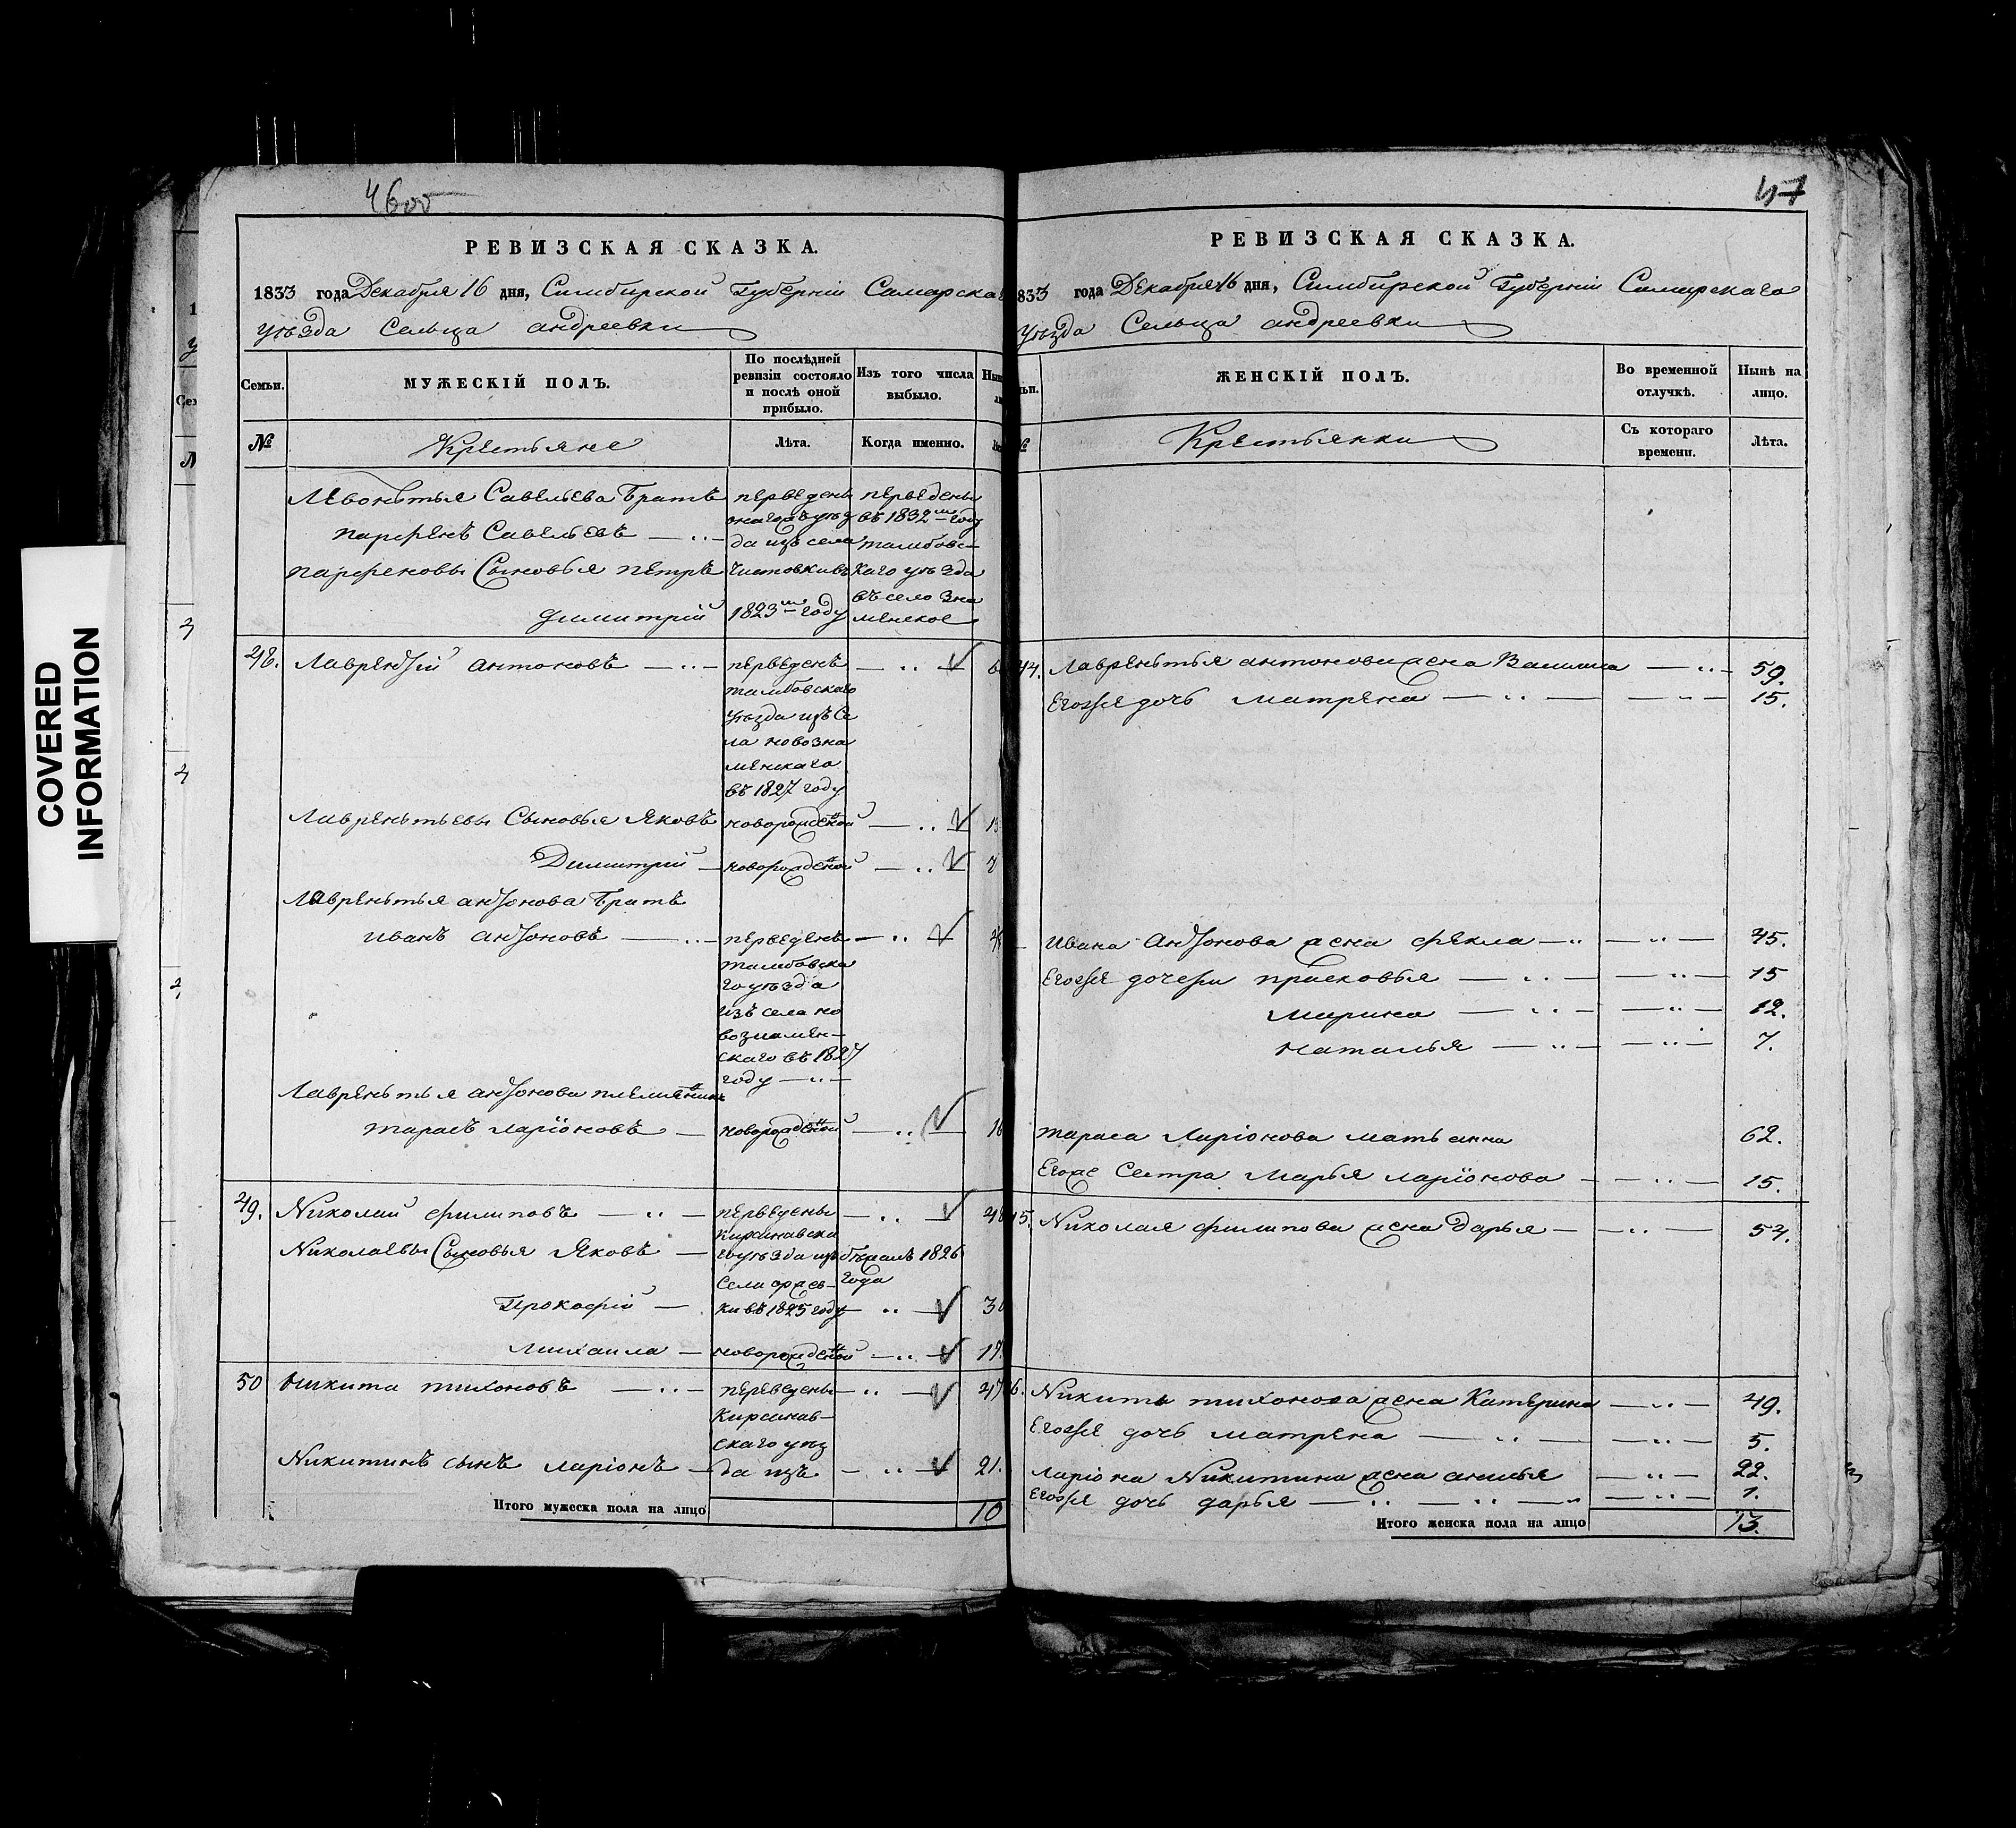 COVERED
INFORMATION
4600
РЕВИЗСКАЯ СКАЗКА.
1833 года Декабря 16 дня, Симбирской Губернии Самарска
уѣзда Сельца андреевки
Семьи.
МУЖЕСКІЙ ПОЛЪ.
По послѣдней
ревизіи состояло
и послѣ оной
прибыло.
Изъ того числа
выбыло.
№
Крестьяне
Лѣта.
Когда именно.
Левонтья Савельева Братъ
парфенъ Савельевъ
парфеновы Сыновья петръ
димитрій
переведены
да изъ села
Чистовки въ
1823 году
переведены
въ 1832 году
тамбовс-
каго уѣзда
въ село Зна
менское
48. Лаврентій антоновъ
переведенъ
тамбовскаго
уѣзда изъ Се
ла новозна
менскаго
въ 1827 году
Лаврентьевы Сыновья Яковъ новорожденой
Димитрій новорожденой
Лаврентья антонова Братъ
иванъ антоновъ
переведенъ
тамбовска
го уѣзда
изъ села но
вознамен-
скаго въ 1827
году
Лаврентья антонова племянникъ
тарасъ ларіоновъ новорожденой
49. Николай филиповъ
Николаевы Сыновья Яковъ
Прокофій
михаила
переведены
Кирсанавска
го уѣзда изъ
Села
ки въ 1825 году
новорожденой
бѣжалъ 1826
года
50 никита тихоновъ
Никитинъ сынъ ларіонъ
переведены
Кирсанав-
скаго уѣз
да изъ
21.
Итого мужеска пола на лицо 10
РЕВИЗСКАЯ СКАЗКА.
833 года Декабря 16 дня, Симбирской Губерніи Самарскаго
уѣзда Сельца андреевки
ЖЕНСКІЙ ПОЛЪ.
Во временной
отлучкѣ.
Нынѣ на
лицо.
Крестьянки
Съ котораго
времени.
Лѣта.
Лаврентья антонова жена Василиса 59.
Егоже дочь матрена 15.
ивана антонова жена фекла 45.
Егоже дочери прасковья 15
марина 12.
наталья 7.
тараса Ларіонова мать анна 62.
Егоже Сестра Марья ларіонова 15.
Николая филипова жена дарья 54.
Никиты тихонова жена Катерина 49.
Егоже дочь матрена 5.
ларіона Никитина жена анисья 22.
Егоже дочь дарья 1.
Итого женска пола на лицо 13.